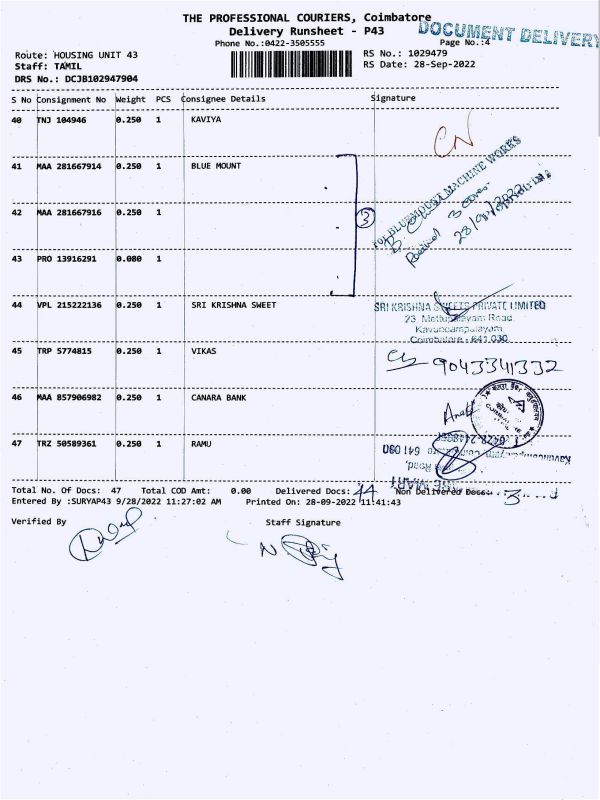 THE PROFESSIONAL COURIERS, Coimbatore
DOCUMENT DELIVERY
Delivery Runsheet - P43
Phone No.:0422-3505555
Page No.:4
Route: HOUSING UNIT 43
RS No.: 1029479
Staff: TAMIL
RS Date: 28-Sep-2022
DRS No.: DCJB102947904
S No Consignment No Weight PCS Consignee Details Signature
40 TNJ 104946 0.250 1 KAVIYA
41 MAA 281667914 0.250 1 BLUE MOUNT
FOR BLUEMOUNT MACHINE WORKS
Received 3 Cover
28/09/2022
42 MAA 281667916 0.250 1
3
43 PRO 13916291 0.080 1
44 VPL 215222136 0.250 1 SRI KRISHNA SWEET
SRI KRISHNA SWEETS PRIVATE LIMITED
23, Mettupalayam Road,
Kavundampalayam
Coimbatore - 641 030
45 TRP 5774815 0.250 1 VIKAS
9043341332
46 MAA 857906982 0.250 1 CANARA BANK
47 TRZ 50589361 0.250 1 RAMU
641 030
Road,
Total No. Of Docs: 47 Total COD Amt: 0.00 Delivered Docs: 44 Non Delivered Docs: 3
Entered By :SURYAP43 9/28/2022 11:27:02 AM Printed On: 28-09-2022 11:41:43
Verified By
Staff Signature